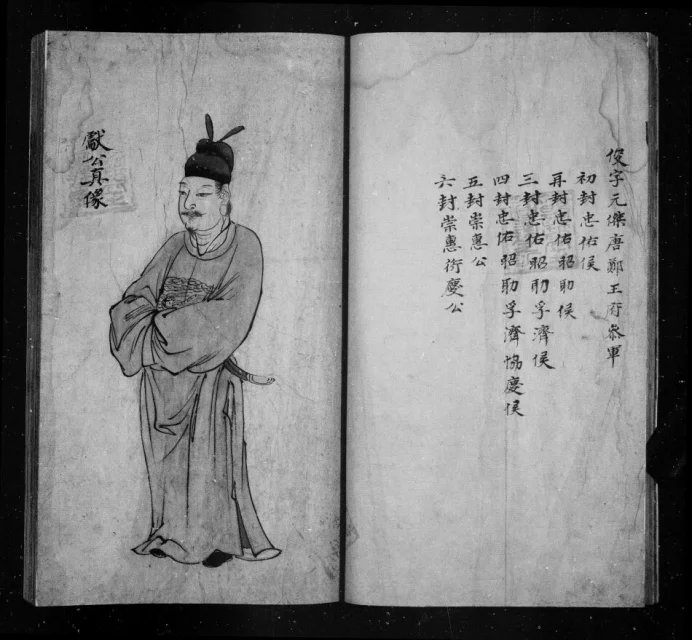 俊字元傑唐鄭王府叅軍
初封忠佑侯
再封忠佑昭助侯
三封忠佑昭助孚濟侯
四封忠佑昭助孚濟協慶侯
五封崇惠公
六封崇惠衍慶公
獻公真像